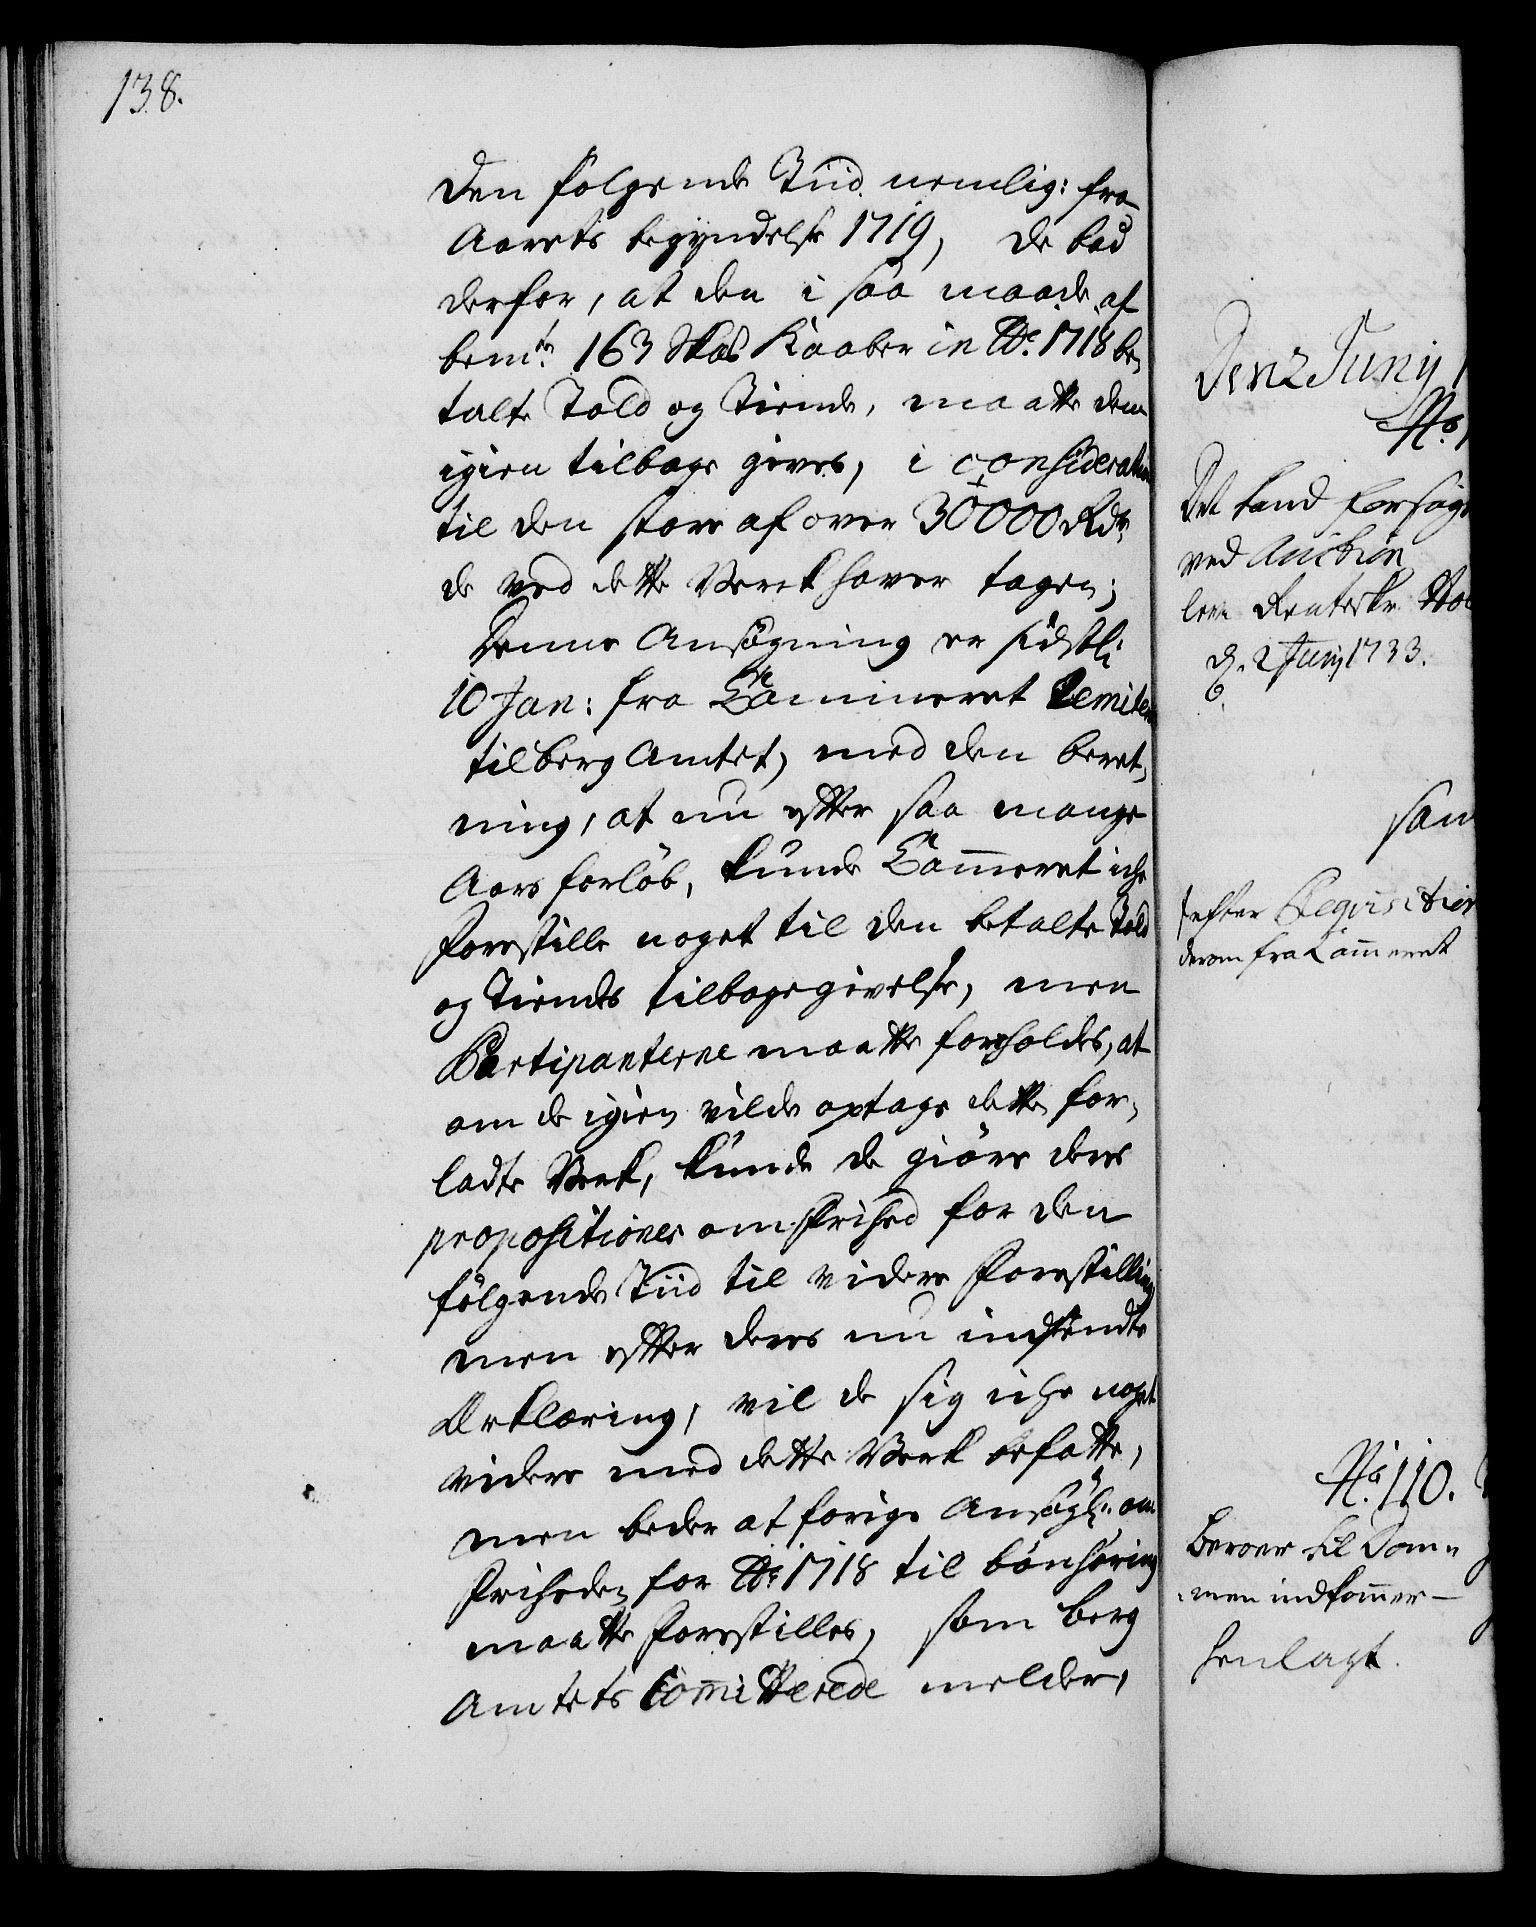 138.
den følgende Tiid. nemlig: fra
Aarets begyndelse 1719, de bad
derfor, at den i saa maade af
bemte 163 Sk℔ Kaaber in Ao. 1718 be„
talte Told og Tiende, maatte dem
igien tilbage gives, i consideration
til den store af over 30000 Rdr
de ved dette Verk haver tagen;
Denne Ansøgning er sidstl:
10 Jan: fra Cammeret remitteret
til berg Amtet, med den beret„
ning, at nu efter saa mange
Aars forløb, kunde Cammeret iche
forestille noget til den betalte Told
og Tiendes tilbagegivelse, men
Partipanterne maatte foreholdes, at
om de igien vilde optage dette for„
ladte Verk, kunde de giøre deres
propositioner om frihed for den
følgende Tiid til videre forestilling
men efter deres nu indsendte
Erklæring, vil de sig iche noget
videre med dette Verk befatte,
men beder at forige Ansøgn: om
friheden for Ao. 1718 til bønhøring
maatte forestilles, som berg
Amtets Committerede melder,
Den 2 Junij
No.
Det kand forsøges
ved Auction
Renteskr.
d. 2 Junij 1733.
efter Reqvisition
derom fra Cammeret
No. 110.
beroer til Dom„
men indkommer —
henlagt.